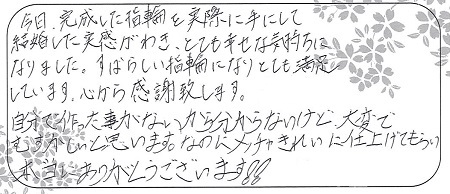 今日、完成した指輪を実際に手にして
結婚した実感がわき、とても幸せな気持ちに
なりました。すばらしい指輪になりとても満足
しています。心から感謝致します。
自分で作った事がないから分からないけど、大変で
むずかしいと思います。なのにメチャきれいに仕上げてもらい
本当にありがとうございます!!